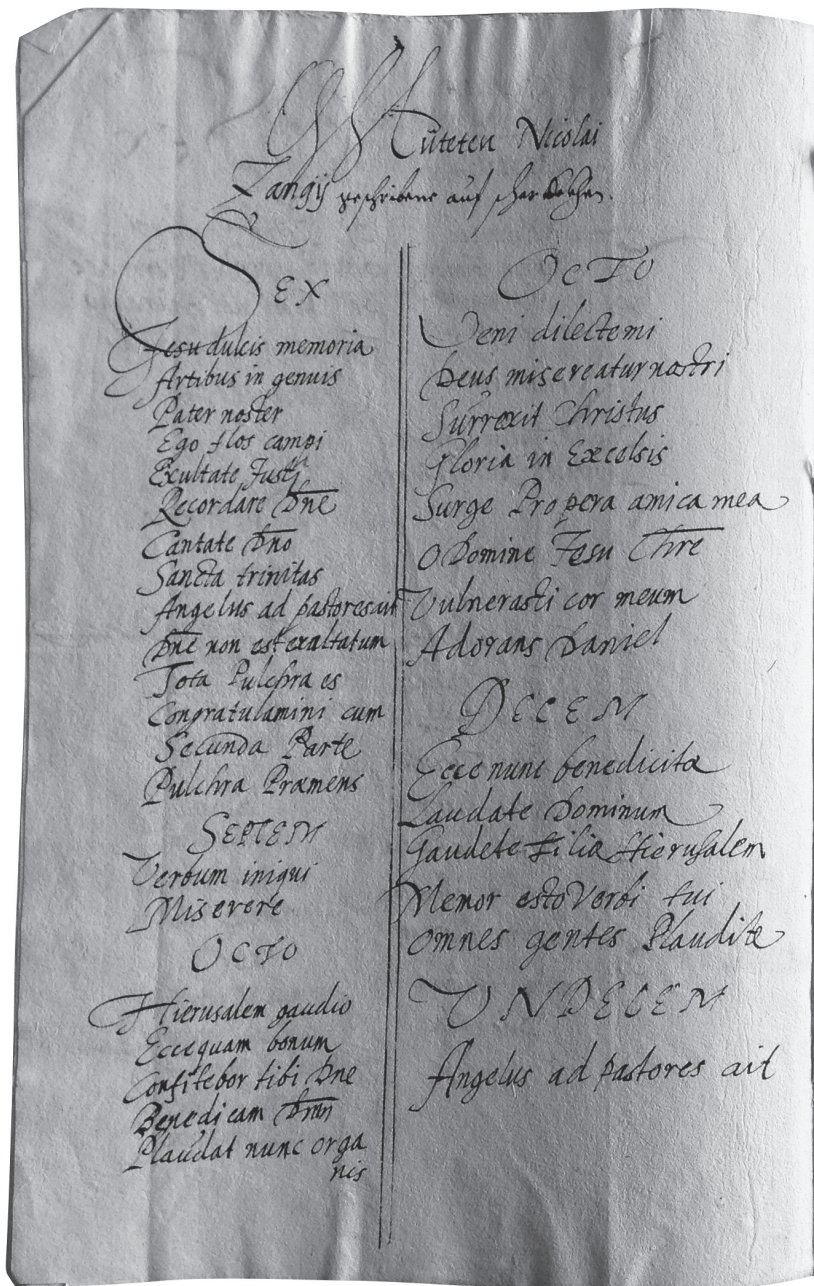 Mūteten Nicolai
Zangij geschribene auf
SEX
Jesu dulcis memoria
Artibus in genuis
Pater noster
Ego flos campi
Exultate Justi
Recordare Dn̄e
Cantate Dn̄o
Sancta trinitas
Angelus ad pastores ait
Dn̄e non est exaltatum
Tota Pulchra es
Congratulamini cum
Secunda Parte
Pulchra Præmens
SEPTEM
Verbum iniqui
Miserere
OCTO
Hierusalem gaudio
Ecce quam bonum
Confitebor tibi Dn̄e
Benedicam Dn̄m
Plaudat nunc orga
nis
OCTO
Veni dilecte mi
Deus misereatur nostri
Surrexit Christus
Gloria in Excelsis
Surge Propera amica mea
O Domine Jesu Chr̄e
Vulnerasti cor meum
Adorans Daniel
DECEM
Ecce nunc benedicite
Laudate Dominum
Gaudete Filiæ Hierusalem
Memor esto Verbi tui
Omnes gentes Plaudite
VNDECEM
Angelus ad pastores ait